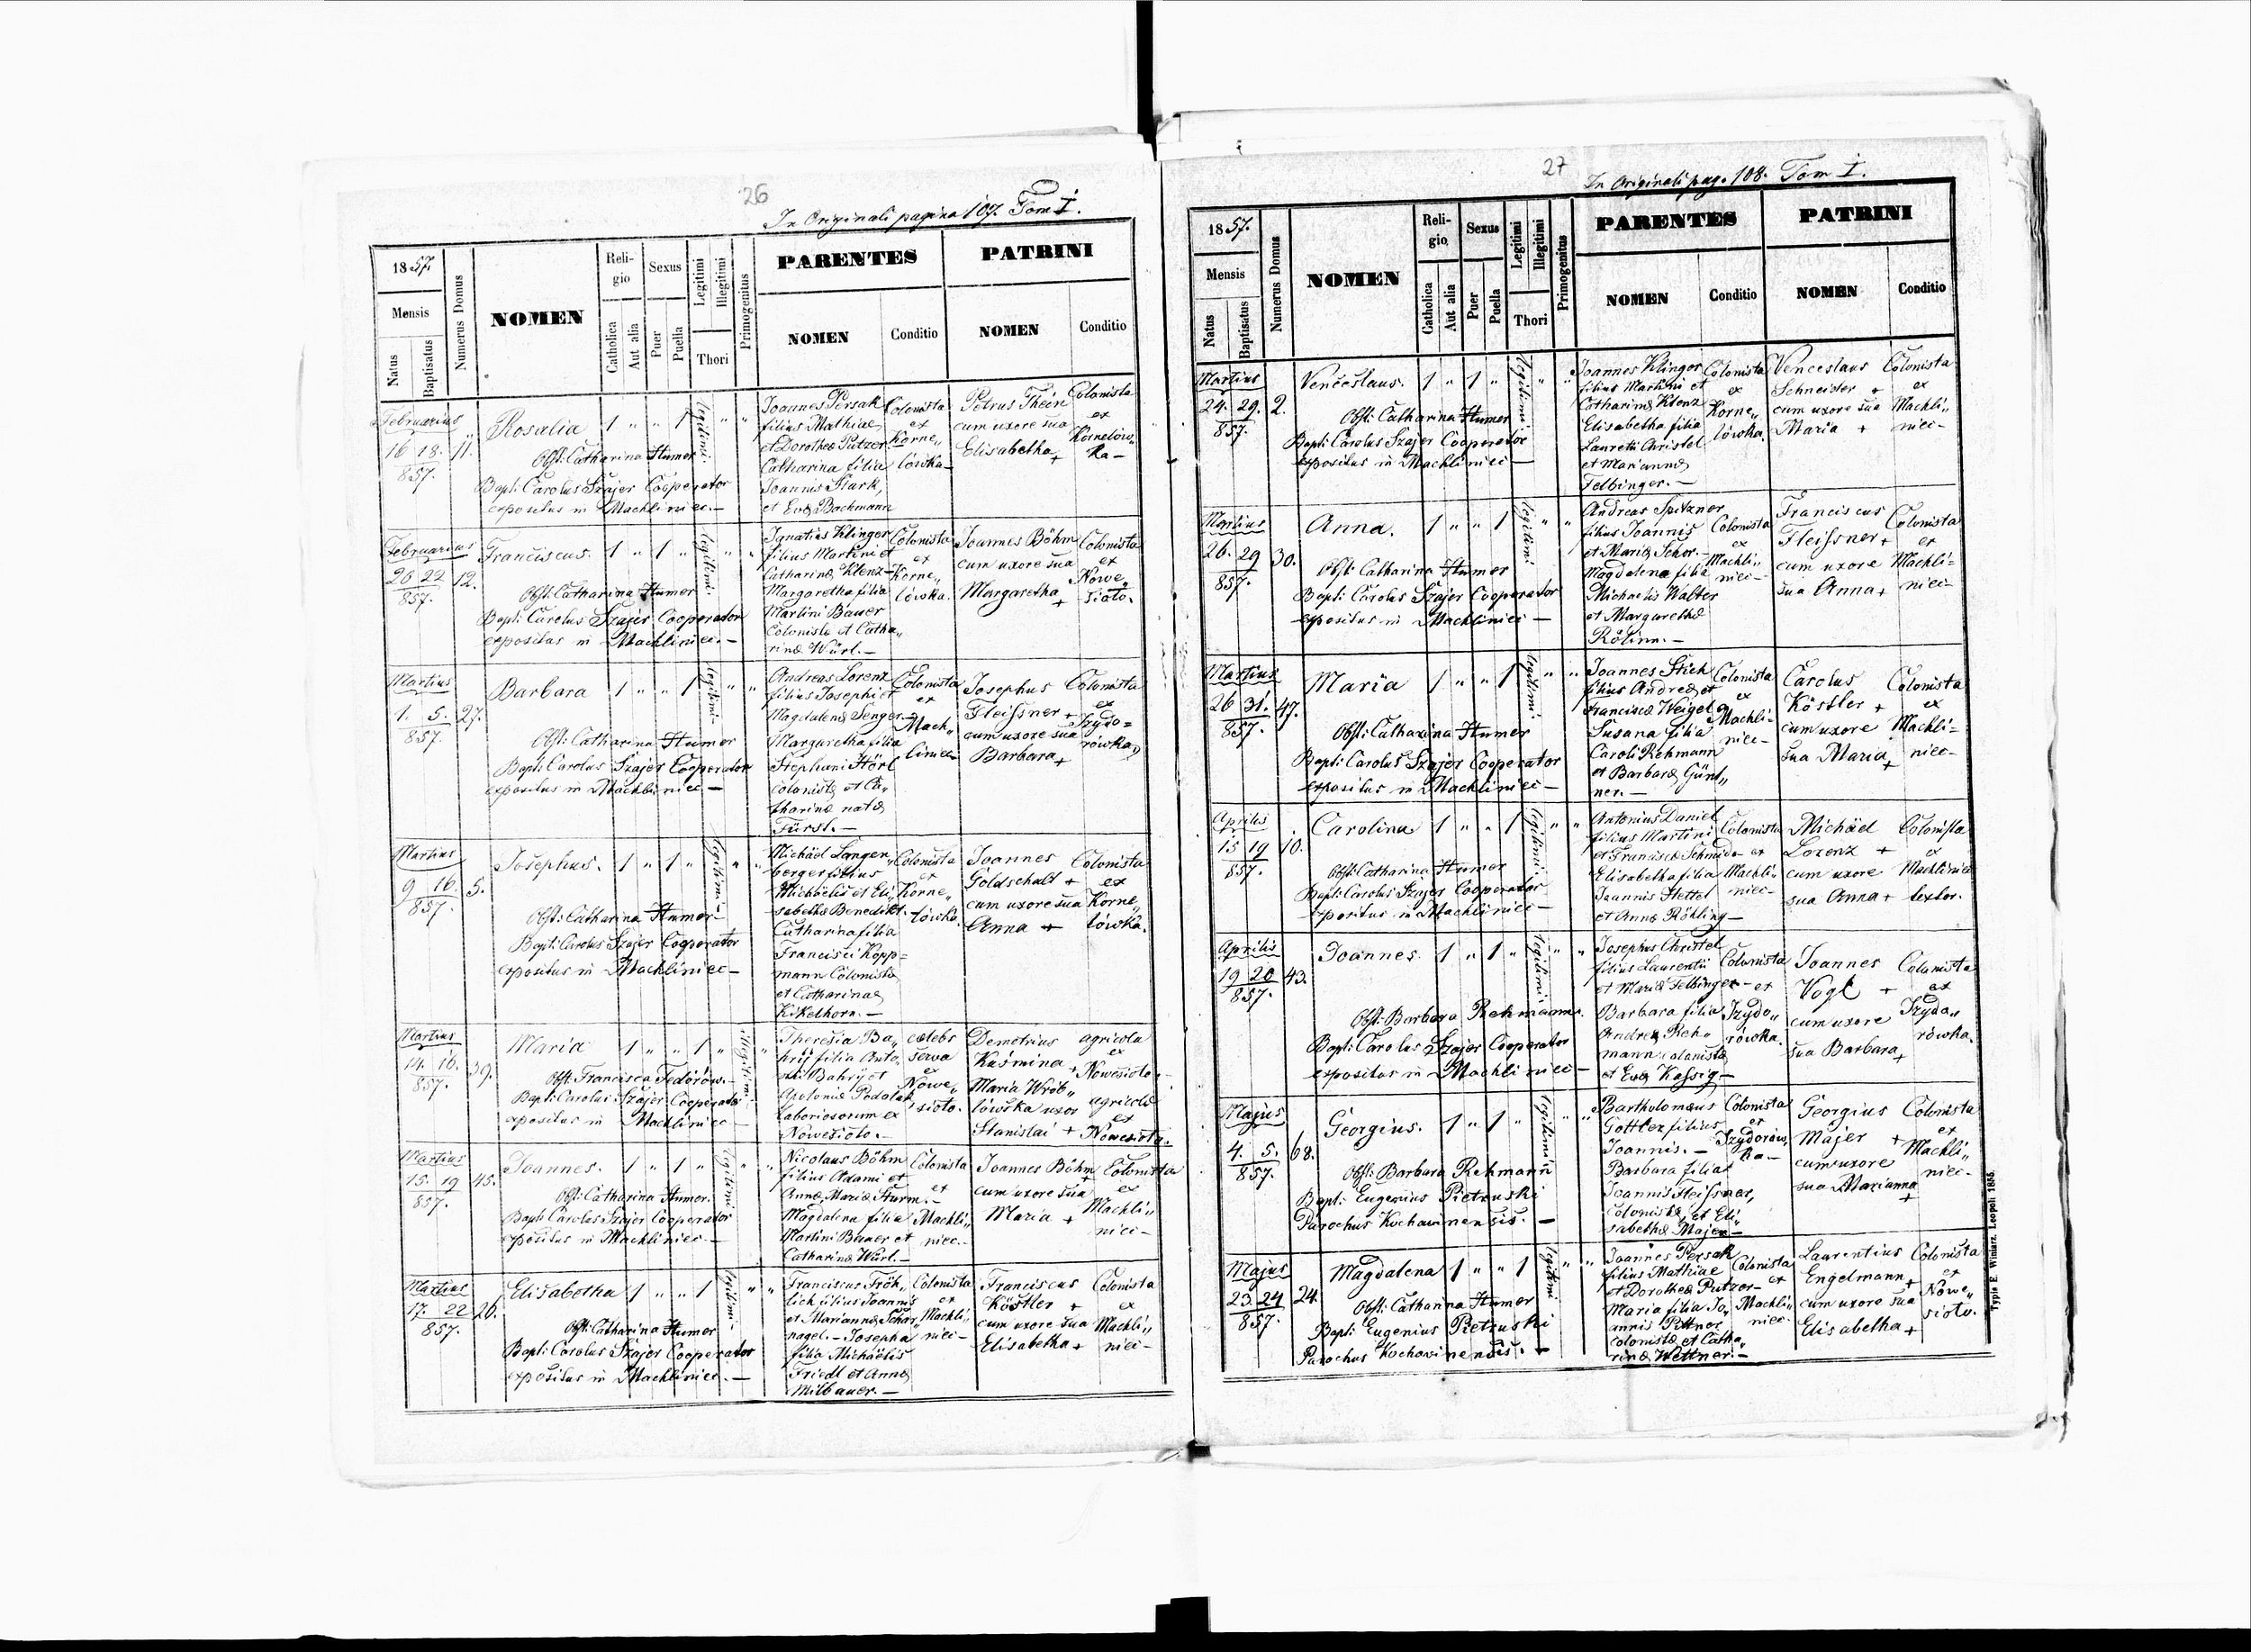 26
In Originali pagina 107. Tom I.
1857.
Mensis
Natus
Baptisatus
Numerus Domus
NOMEN
Religio
Catholica
Aut alia
Sexus
Puer
Puella
Legitimi
Illegitimi
Thori
Primogenitus
PARENTES
NOMEN
Conditio
PATRINI
NOMEN
Conditio
Februarius
16 18. 11.
857.
Rosalia 1 " " 1 legitimi " "
Obst: Catharina Humer
Bapt: Carolus Szajer Cooperator
expositus in Machliniec.—
Joannes Persak
filius Mathiae
et Dorothea Putzer
Catharina filia
Joannis Stark,
et Eva Bachmann
Colonista
ex
Korne„
lówka—
Petrus Thein
cum uxore sua
Elisabetha +
Colonista
ex
Kornelów„
ka—
Februarius
20 22 12.
857.
Franciscus. 1 " 1 " legitimi " "
Obst: Catharina Humer
Bapt: Carolus Szajer Cooperator
expositus in Machliniec.—
Ignatius Klinger
filius Martini et
Catharina Klenz—
Margaretha filia
Martini Bauer
Colonista et Catha„
rina Würl.—
Colonista
ex
Korne„
lówka.
Joannes Böhm
cum uxore sua
Margaretha +
Colonista
ex
Nowe„
sioło.
Martius
1. 5. 27.
857.
Barbara 1 " " 1 legitimi " "
Obst: Catharina Humer
Bapt: Carolus Szajer Cooperator
expositus in Machliniec—
Andreas Lorenz
filius Josephi et
Magdalena Senger—
Margaretha filia
Stephani Hörl
colonista et Ca„
tharina nata
Fürst.—
Colonista
ex
Mach„
liniec
Josephus
Fleissner +
cum uxore sua
Barbara +
Colonista
ex
Izydo=
rówka
Martius
9 16. 5.
857.
Josephus. 1 " 1 " legitimi " "
Obst: Catharina Humer
Bapt: Carolus Szajer Cooperator
expositus in Machliniec—
Michäel Langen„
berger filius
Michaelis et Eli„
sabetha Benedikt.
Catharina filia
Francisci Kopp=
mann Colonista
et Catharina
Kikelhorn.—
Colonista
ex
Korne„
lówka.
Joannes
Goldschald +
cum uxore sua
Anna +
Colonista
ex
Korne„
lówka.
Martius
14. 16. 39.
857.
Maria 1 " " 1 " illegitimi "
Obst: Francisca Fedórów.—
Bapt: Carolus Szajer Cooperator
expositus in Machliniec—
Theresia Ba„
hrij filia Anto„
nii Bahrij et
Apolonia Podolak
laboriosorum ex
Nowesioło.—
caelebs
serva
ex
Nowe„
sioło.
Demetrius
Kuśmina +
Maria Wrób„
lówska uxor
Stanislai +
agricola
ex
Nowesioło.
agricola
ex
Nowesioło.
Martius
15. 19 45.
857.
Joannes. 1 " 1 " legitimi " "
Obst: Catharina Humer.
Bapt: Carolus Szajer Cooperator
expositus in Machliniec.—
Nicolaus Böhm
filius Adami et
Anna Maria Sturm.—
Magdalena filia
Martini Bauer et
Catharina Würl.—
Colonista
ex
Machli„
niec.—
Joannes Böhm
cum uxore sua
Maria +
Colonista
ex
Machli„
niec—
Martius
17. 22 26.
857.
Elisabetha 1 " " 1 legitimi " "
Obst: Catharina Humer
Bapt: Carolus Szajer Cooperator
expositus in Machliniec.—
Franciscus Fröh„
lich filius Joannis
et Marianna Schar„
nagel.— Josepha
filia Michäelis
Friedl et Anna
Milbauer.—
Colonista
ex
Machli„
niec—
Franciscus
Köstler +
cum uxore sua
Elisabetha +
Colonista
ex
Machli„
niec—
27
In Originali pag. 108. Tom I.
1857.
Mensis
Natus
Baptisatus
Numerus Domus
NOMEN
Religio
Catholica
Aut alia
Sexus
Puer
Puella
Legitimi
Illegitimi
Thori
Primogenitus
PARENTES
NOMEN
Conditio
PATRINI
NOMEN
Conditio
Martius
24. 29. 2.
857.
Venceslaus. 1 " 1 " legitimi " "
Obst: Catharina Humer
Bapt: Carolus Szajer Cooperator
expositus in Machliniec—
Joannes Klinger
filius Martini et
Catharina Klenz
Elisabetha filia
Lauretii Christel
et Marianna
Felbinger.—
Colonista
ex
Korne„
lówka.
Venceslaus
Schneider +
cum uxore sua
Maria +
Colonista
ex
Machli„
niec—
Martius
26. 29 30.
857.
Anna. 1 " " 1 legitimi " "
Obst: Catharina Humer
Bapt: Carolus Szajer Cooperator
expositus in Machliniec—
Andreas Spitzner
filius Joannis
et Maria Schor.—
Magdalena filia
Michaelis Walter
et Margaretha
Rölinn.—
Colonista
ex
Machli„
niec—
Franciscus
Fleissner +
cum uxore
sua Anna +
Colonista
ex
Machli=
niec—
Martius
26 31. 47.
857.
Maria 1 " " 1 legitimi " "
Obst: Catharina Humer
Bapt: Carolus Szajer Cooperator
expositus in Machliniec—
Joannes Stich
filius Andrea et
Francisca Weigel
Susana filia
Caroli Rehmann
et Barbara Günt„
ner.—
Colonista
ex
Machli=
niec—
Carolus
Köstler +
cum uxore
sua Maria +
Colonista
ex
Machli=
niec—
Aprilis
15 19 10.
857.
Carolina 1 " " 1 legitimi " "
Obst: Catharina Humer
Bapt: Carolus Szajer Cooperator
expositus in Machliniec—
Antonius Daniel
filius Martini
et Francisca Schmida
Elisabetha filia
Joannis Hettel
et Anna Röhling—
Colonista
ex
Machli„
niec—
Michäel
Lorenz +
cum uxore
sua Anna +
Colonista
ex
Machliniec
textor.
Aprilis
19 20 43.
857.
Joannes. 1 " 1 " legitimi " "
Obst: Barbara Rehmann.
Bapt: Carolus Szajer Cooperator
expositus in Machliniec—
Josephus Christel
filius Laurentii
et Maria Felbinger—
Barbara filia
Andrea Reh„
mann colonista
et Eva Kassig—
Colonista
ex
Izydo„
rówka.
Joannes
Vogl +
cum uxore
sua Barbara +
Colonista
ex
Izydo„
rówka.
Majus
4. 5. 68.
857.
Georgius. 1 " 1 " legitimi " "
Obst: Barbara Rehmann
Bapt: Eugenius Pietruski
Parochus Kochawinensis.—
Bartholomaeus
Gottler filius
Joannis.—
Barbara filia
Joannis Fleissner,
Colonista, et Eli„
sabetha Majer—
Colonista
ex
Izydorów„
ka—
Georgius
Majer +
cum uxore
sua Marianna
+
Colonista
ex
Machli„
niec—
Majus
23. 24 24.
857.
Magdalena 1 " " 1 legitimi " "
Obst: Catharina Humer
Bapt: Eugenius Pietruski
Parochus Kochawinensis.—
Joannes Persak
filius Mathiae
et Dorothea Putzer—
Maria filia Jo„
annis Pittner
colonista et Catha„
rina Wettner.—
Colonista
ex
Machli„
niec
Laurentius
Engelmann +
cum uxore sua
Elisabetha +
Colonista
ex
Nowe„
sioło.
Typis E. Winiarz. Leopoli 1855.